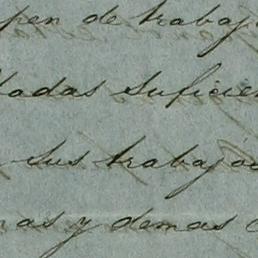 pen de trabaj
ladas suficien
sus trabajo
nas y demas